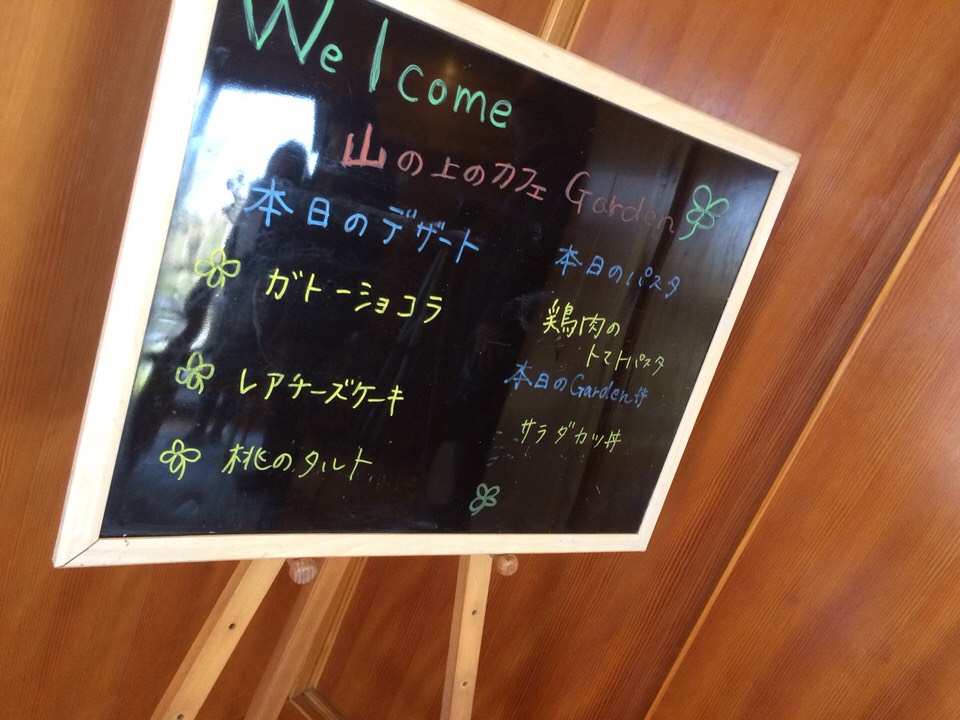 Welcome
山の上のカフェ Garden
本日のデザート
ガトーショコラ
レアチーズケーキ
桃のタルト
本日のパスタ
鶏肉の
トマトパスタ
本日のGarden丼
サラダカツ丼